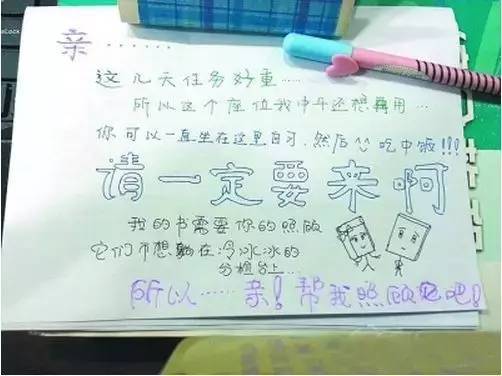 亲······
这几天任务好重·····
所以这个座位我中午还想再用···
你可以一直坐在这里自习，然后吃中饭!!!
请一定要来啊
我的书需要你的照顾
它们不想躺在冷冰冰的
分检台上···
所以······亲！帮我照顾它吧！